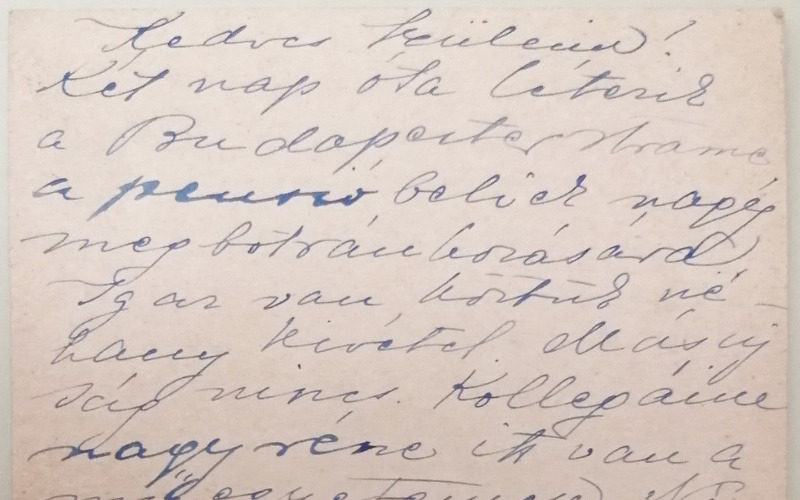 Kedves Szüleim!
Két nap óta létezik
a Budapester Strasse
a penzió beliek nagy
megbotránkozására
Igaz van köztük né-
hány kivétel. Más uj
ság nincs. Kollegáim
nagyrésze itt van a